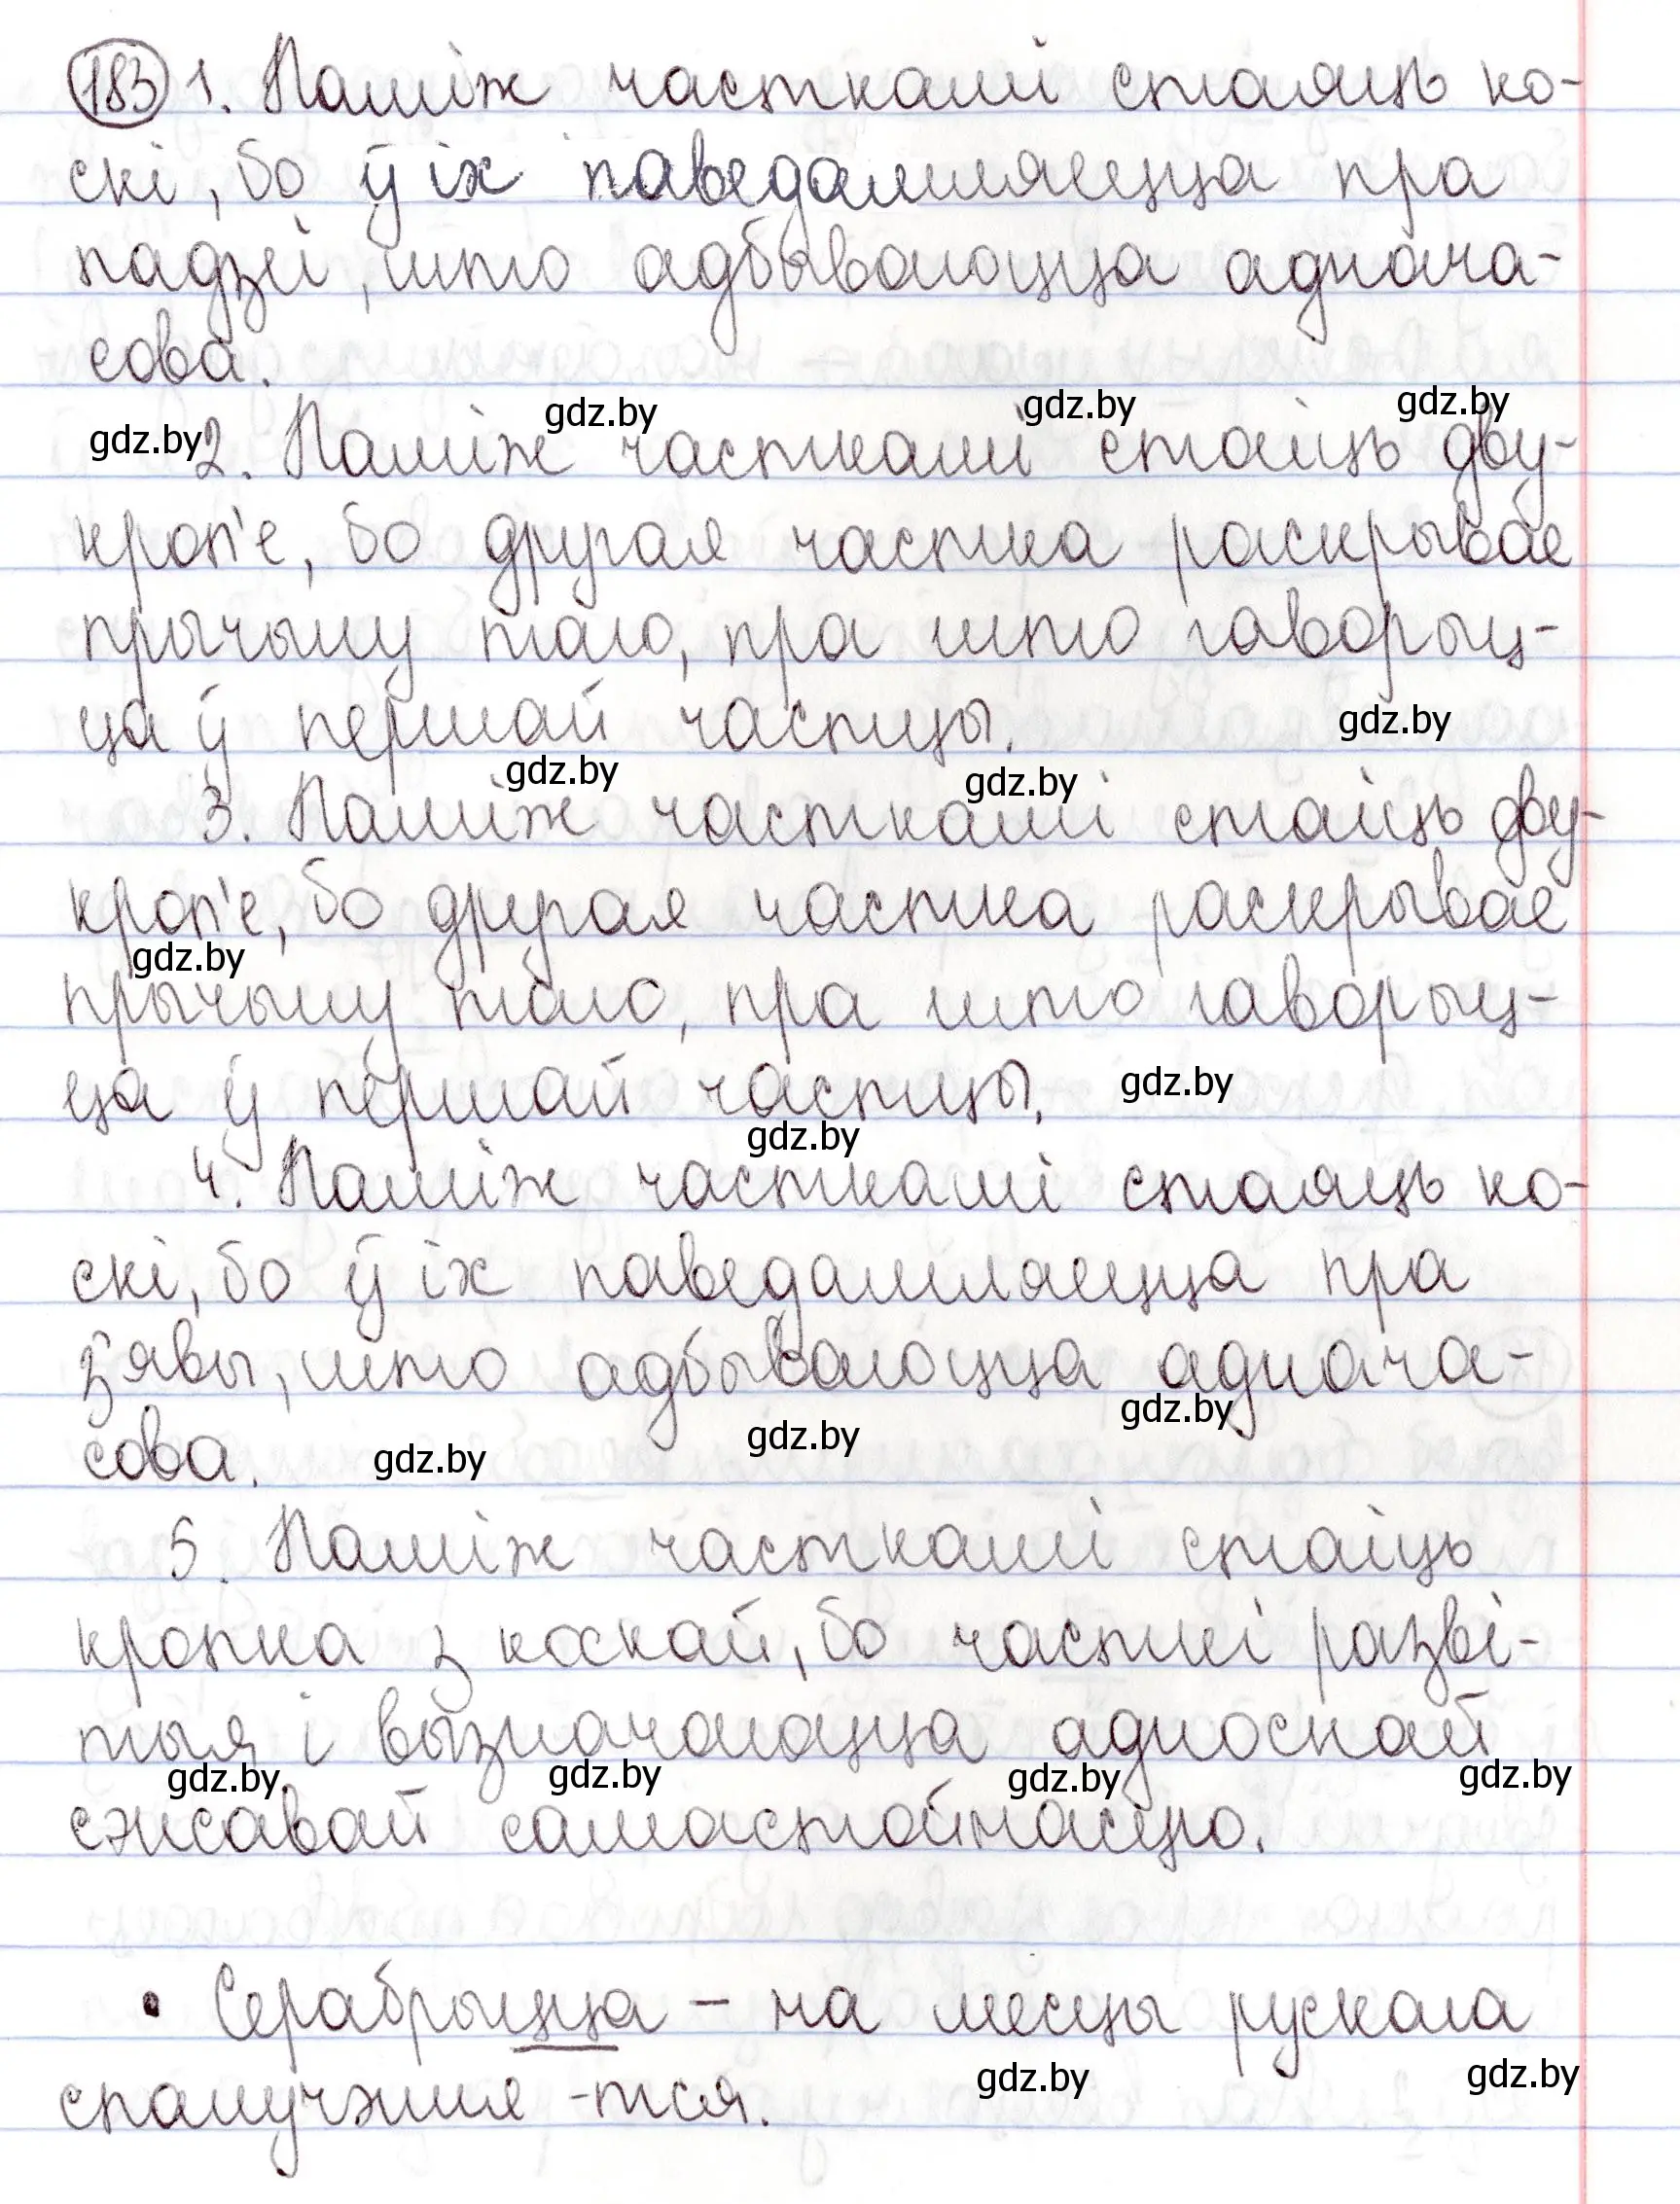 183 1. Паміж часткамі стаяць ко-
скі, бо ў іх паведамляецца пра
падзеі, што адбываюцца адноча-
сова.
gdz.by gdz.by gdz.by gdz.by
2. Паміж часткамі стаіць дву-
кроп'е, бо другая частка раскрывае
прычыну таго, пра што гаворыц-
ца ў першай частцы.
gdz.by
gdz.by gdz.by
3. Паміж часткамі стаіць дву-
кроп'е, бо другая частка раскрывае
gdz.by
прычыну таго, пра што гаворыц-
ца ў першай частцы.
gdz.by
gdz.by
4. Паміж часткамі стаяць ко-
скі, бо ў іх паведамляецца пра
з'явы, што адбываюцца адноча-
gdz.by
сова.
gdz.by gdz.by
5. Паміж часткамі стаіць
кропка з коскай, бо часткі разві-
тыя і вызначаюцца адноснай
gdz.by gdz.by gdz.by gdz.by
сэнсавай самастойнасцю.
• Серабрыцца – на месцы рускага
спалучэння -тся.
gdz.by gdz.by